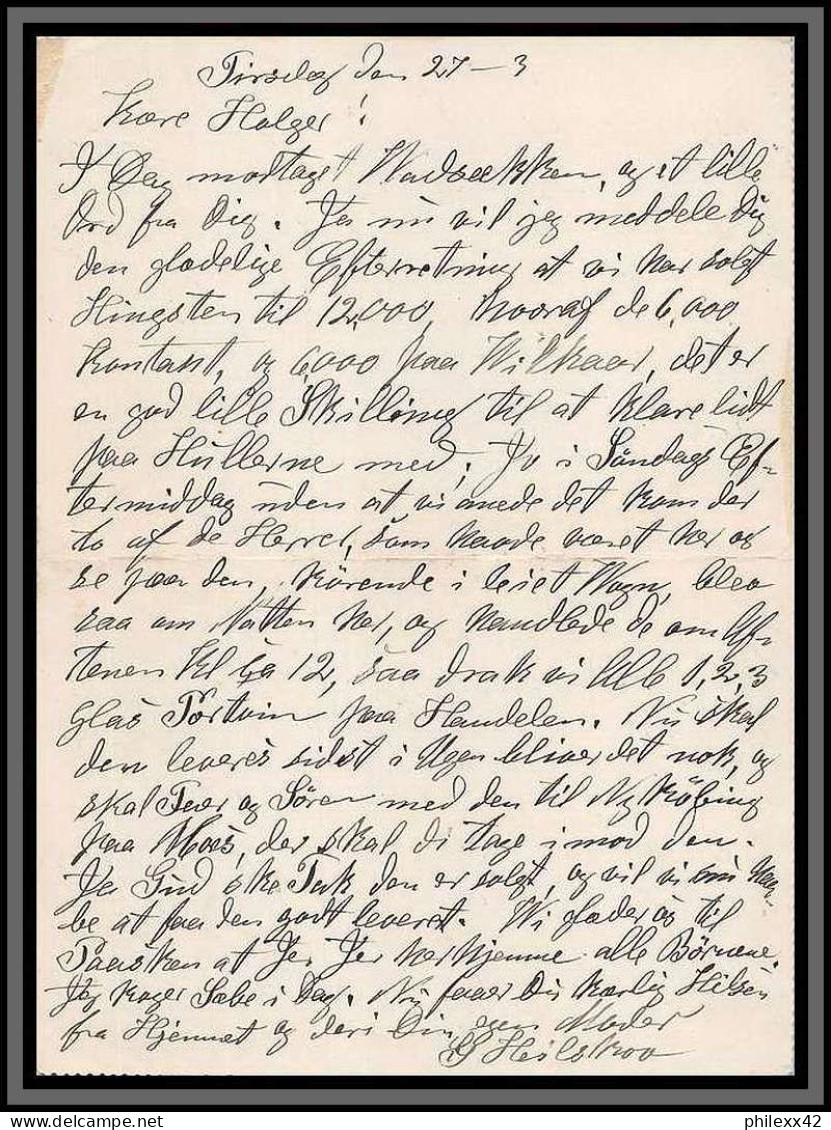 Tirsdag den 27-3
Kære Holger!
I Dag modtaget Vadsækken, og et lille
Ord fra Dig. Ja nu vil jeg meddele Dig
den glædelige Efterretning at vi har solgt
Hingsten til 12,000, hvoraf de 6,000
kontant, og 6,000 paa Vilkaar, det er
en god lille Skilling til at klare lidt
paa Hullerne med; Jo i Söndags Ef-
termiddag uden at vi anede det kom der
to af de Herrer, som havde været her og
se paa den, körende i leiet Vogn, blev
saa om Natten her, og handlede de om Af-
tenen Kl 12, saa drak vi Alle 1, 2, 3
Glas Portvin paa Handelen. Nu skal
den leveres sidst i Ugen bliver det nok, og
skal og Sören med den til Nyköbing
paa Mors, der skal di tage imod den.
Ja Gud ske Tak den er solgt, og vil vi nu haa-
be at faa den godt leveret. Vi glæder os til
Paasken at Jer herhjemme alle Börnene.
Jeg koger Sæbe i Dag. Nu faaer Du kærlig Hilsen
fra Hjemmet og deri Din egen Moder
Heilskov
philexx42